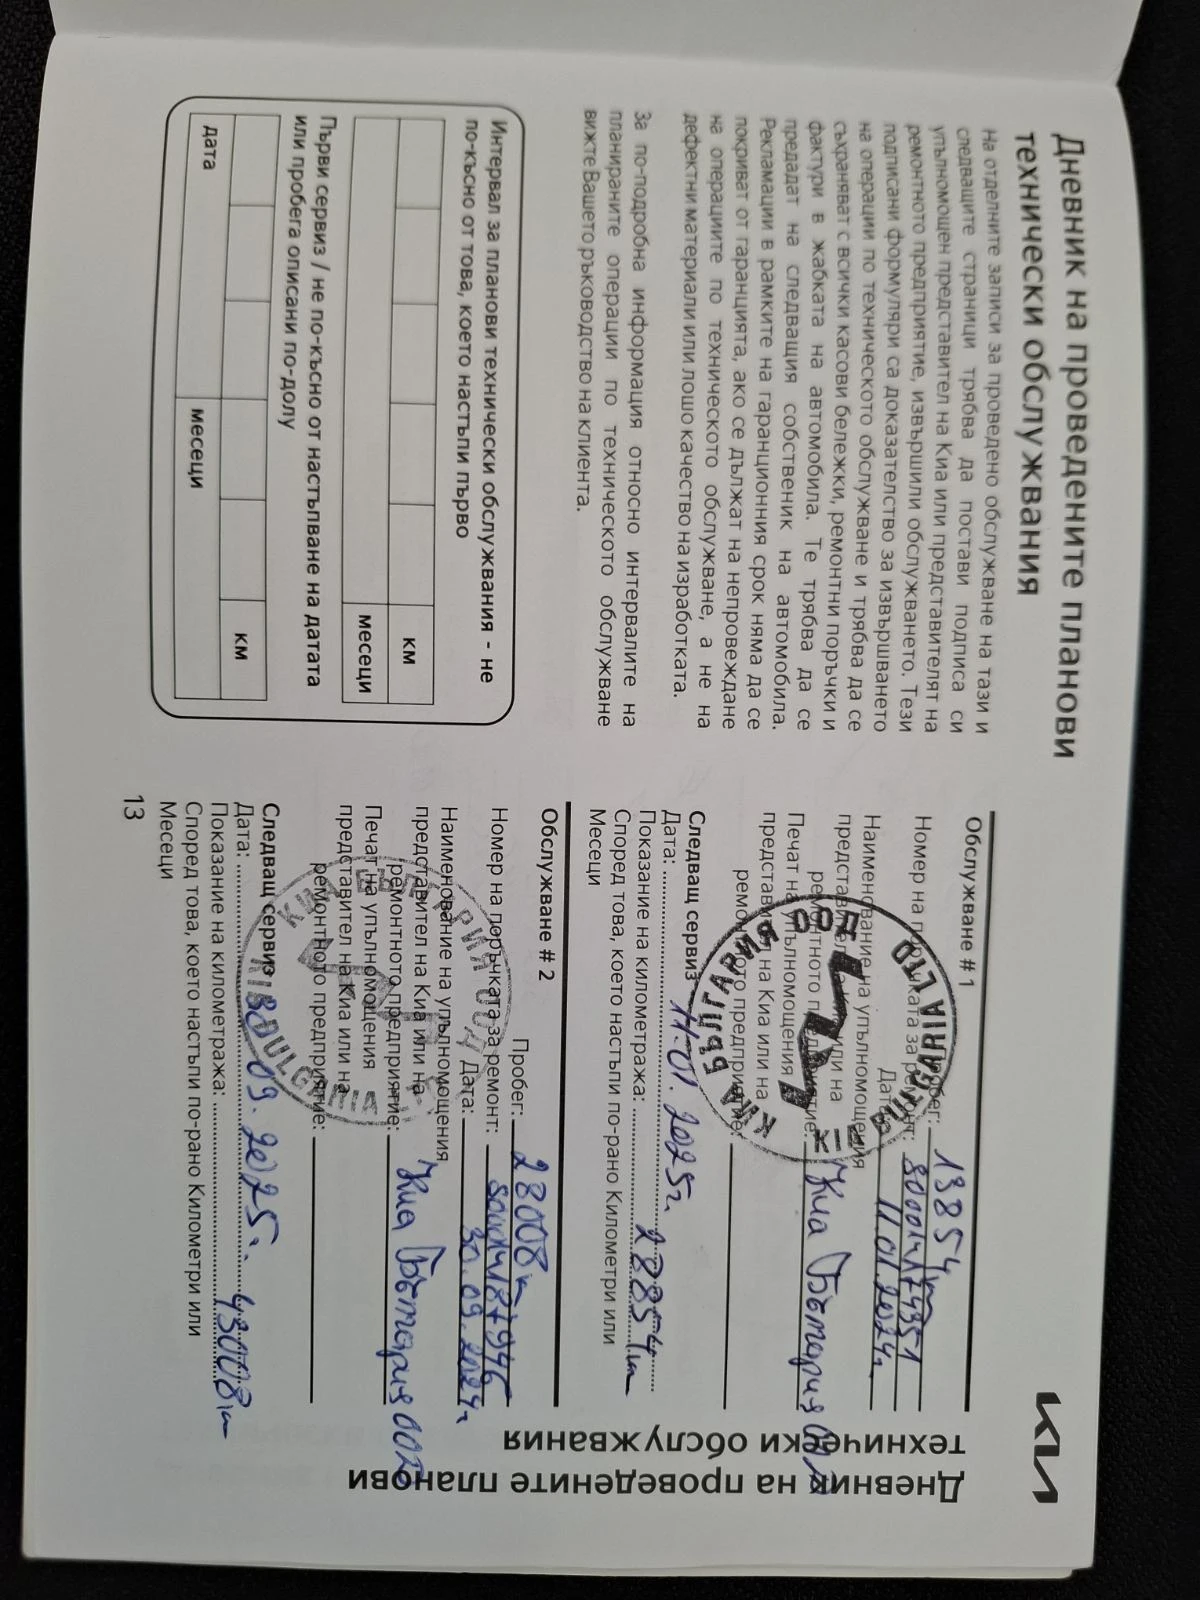 Дневник на проведените планови
технически обслужвания
На отделните записи за проведено обслужване на тази и
следващите страници трябва да постави подписа си
упълномощен представител на Киа или представителят на
ремонтното предприятие, извършили обслужването. Тези
подписани формуляри са доказателство за извършването
на операции по техническото обслужване и трябва да се
съхраняват с всички касови бележки, ремонтни поръчки и
фактури в жабката на автомобила. Те трябва да се
предадат на следващия собственик на автомобила.
Рекламации в рамките на гаранционния срок няма да се
покриват от гаранцията, ако се дължат на непровеждане
на операциите по техническото обслужване, а не на
дефектни материали или лошо качество на изработката.
За по-подробна информация относно интервалите на
планираните операции по техническото обслужване
вижте Вашето ръководство на клиента.
Интервал за планови технически обслужвания - не
по-късно от това, което настъпи първо
км
месеци
Първи сервиз / не по-късно от настъпване на датата
или пробега описани по-долу
км
дата месеци
KIA
Обслужване # 1
Пробег: 13854 km
Номер на поръчката за ремонт:
Дата: 11.01.2024г.
Наименование на упълномощения
представител на Киа или на
ремонтното предприятие: Киа България ООД
Печат на упълномощения
представител на Киа или на
ремонтното предприятие:
КИА БЪЛГАРИЯ ООД
KIA BULGARIA LTD
Следващ сервиз
Дата: 11.01.2025г.
Показание на километража: 28854 km
Според това, което настъпи по-рано Километри или
Месеци
Обслужване # 2
Пробег: 28008 km
Номер на поръчката за ремонт:
Дата: 30.09.2024г.
Наименование на упълномощения
представител на Киа или на
ремонтното предприятие: Киа България ООД
Печат на упълномощения
представител на Киа или на
ремонтното предприятие:
Следващ сервиз
Дата: 30.09.2025г.
Показание на километража: 43008 km
Според това, което настъпи по-рано Километри или
Месеци
13
Дневник на проведените планови
технически обслужвания